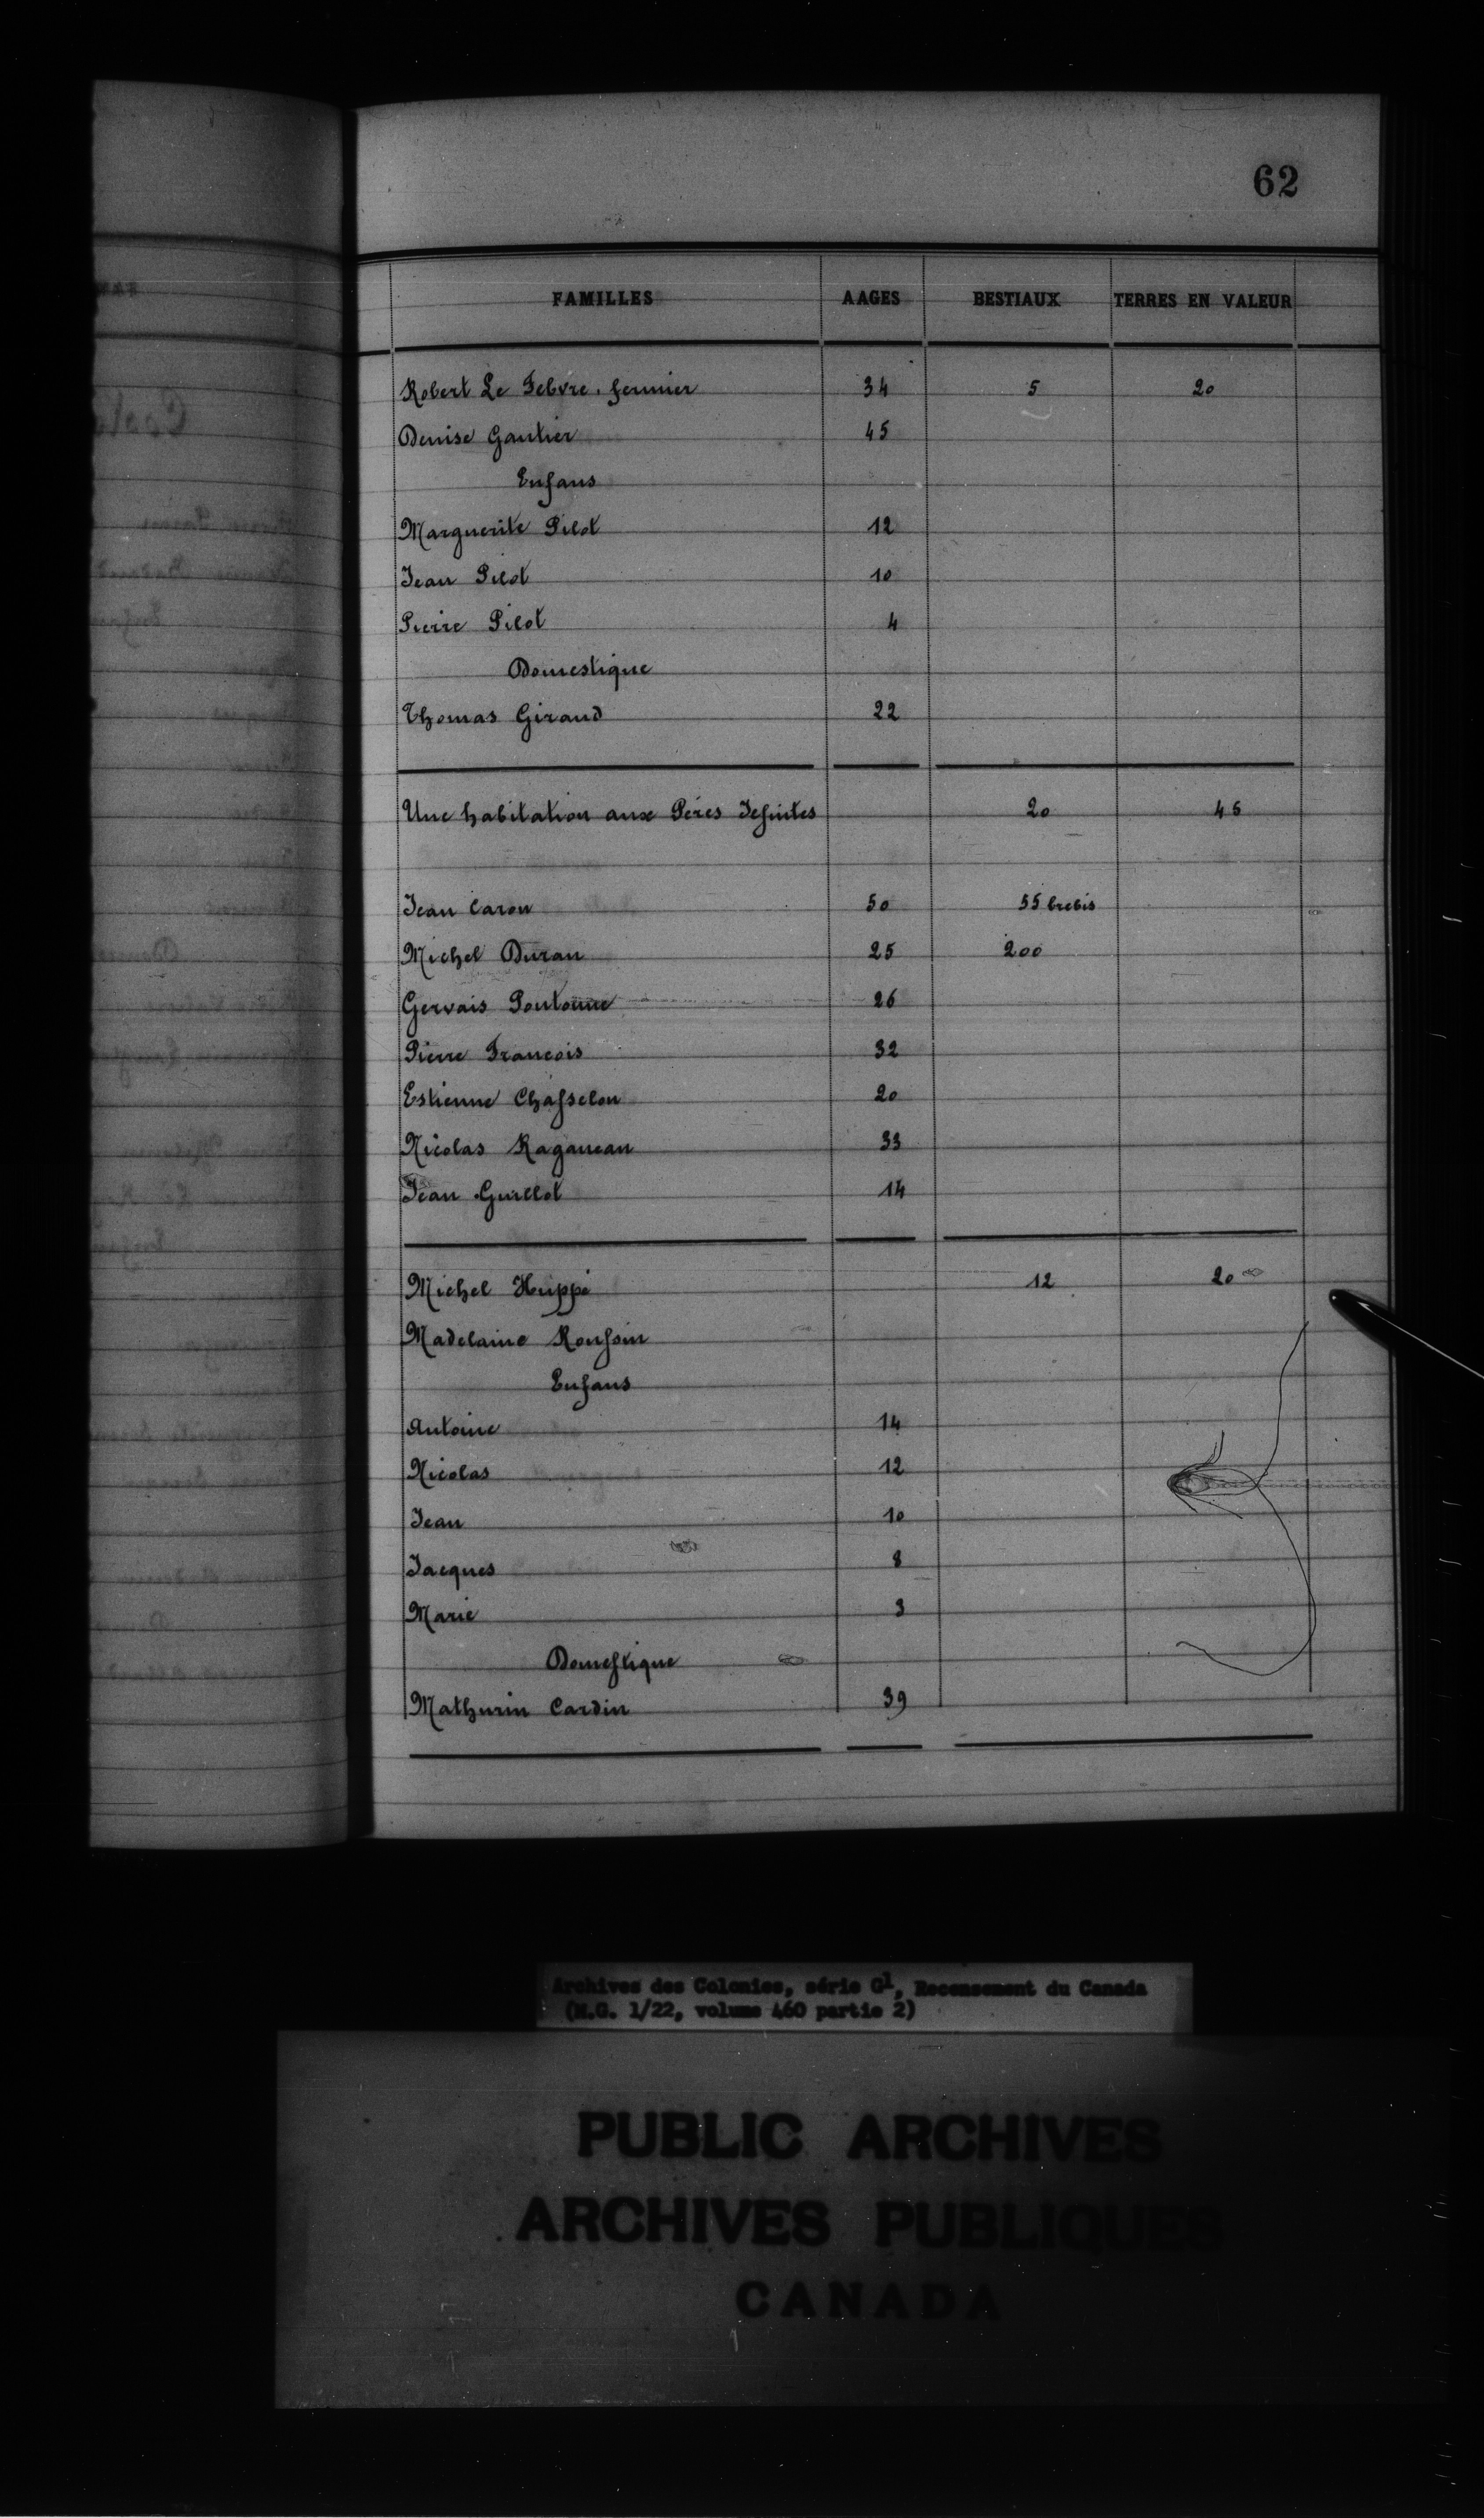 62
FAMILLES AAGES BESTIAUX TERRES EN VALEUR
Robert Le Febvre, fermier 34 5 20
Denise Gautier 45
Enfans
Marguerite Pilot 12
Jean Pilot 10
Pierre Pilot 4
Domestique
Thomas Giraud 22
Une habitation aux Pères Jesuites 20 46
Jean Caron 50 55 brebis
Michel Duran 25 200
Gervais Pontonne 26
Pierre Francois 32
Estienne Chasselou 20
Nicolas Raganeau 33
Jean Guillot 14
Michel Huppé 12 20
Madelaine Roussin
Enfans
Antoine 14
Nicolas 12
Jean 10
Jacques 8
Marie 3
Domestique
Mathurin Cardin 39
Archives des Colonies, série G1, Recensement du Canada
(M.G. 1/22, volume 460 partie 2)
PUBLIC ARCHIVES
ARCHIVES PUBLIQUES
CANADA